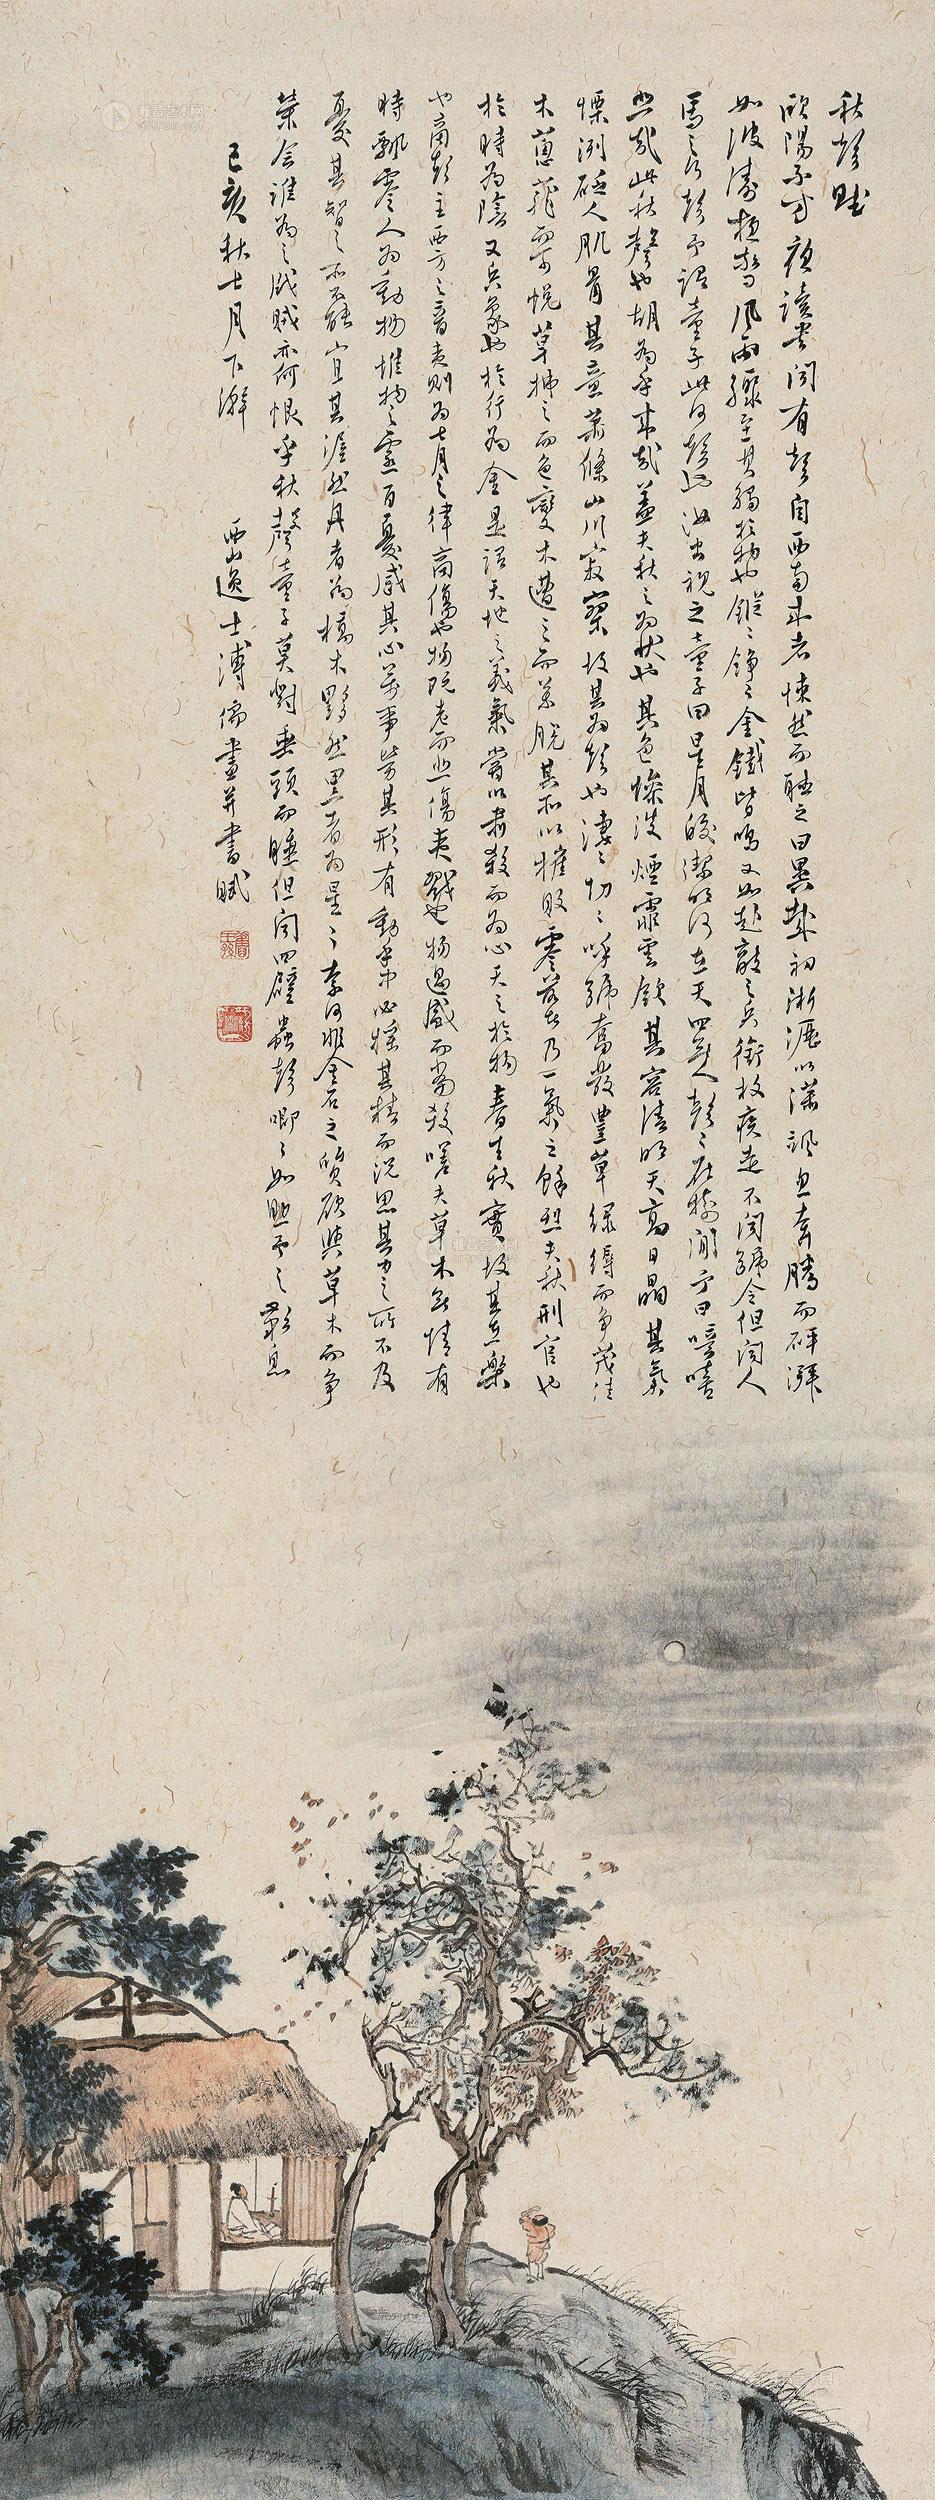 秋聲賦
歐陽子方夜讀書聞有聲自西南來者悚然而聽之曰異哉初淅瀝以瀟颯忽奔騰而砰湃
如波濤夜驚風雨驟至其觸於物也鏦〻錚〻金鐵皆鳴又如赴敵之兵銜枚疾走不聞號令但聞人
馬之行聲予謂童子此何聲也汝出視之童子曰星月皎潔明河在天四無人聲〻在樹間予曰噫嘻
悲哉此秋聲也胡為乎來哉蓋夫秋之為狀也其色慘淡煙霏雲斂其容清明天高日晶其氣
慄洌砭人肌骨其意蕭條山川寂寥故其為聲也淒〻切〻呼號奮發豐草綠縟而爭茂佳
木蔥蘢而可悅草拂之而色變木遭之而葉脫其所以摧敗零落者乃一氣之餘烈夫秋刑官也
於時為陰又兵象也於行為金是謂天地之義氣常以肅殺而為心天之於物春生秋實故其在樂
也商聲主西方之音夷則為七月之律商傷也物既老而悲傷夷戮也物過盛而當殺嗟夫草木無情有
時飄零人為動物惟物之靈百憂感其心萬事勞其形有動乎中必搖其精而況思其力之所不及
憂其智之所不能宜其渥然丹者為槁木黟然黑者為星〻奈何非金石之質欲與草木而爭
榮念誰為之戕賊亦何恨乎秋聲童子莫對垂頭而睡但聞四壁蟲聲唧〻如助予之歎息
己亥秋七月下澣
西山逸士溥儒畫并書賦